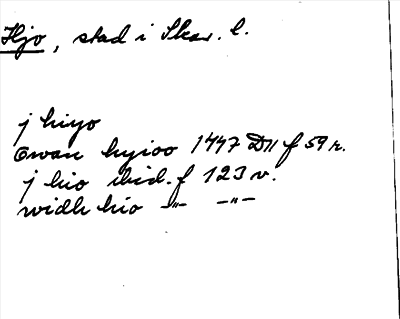 Hjo, stad i Skar. l.
j hiyo
Owan hyioo 1447 D11 f 59 r.
j hio ibid. f 123 v.
widh hio -"- -"-